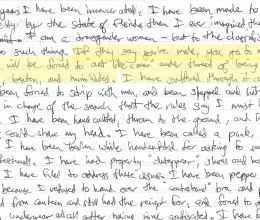 years I have been incarcerated, I have been made to
by the State of Florida than I ever imagined the
I am a transgender woman - but to the classif
no such thing. If they say you're male, you are to
will be forced to act like a man under threat of being
beaten, and humiliated. I have suffered through it
been forced to strip with men, and been slapped and hit
in charge of the search that the rules say I must b
I have been handcuffed, thrown to the ground, and
could shave my head. I have been called a punk,
I have been beaten while handcuffed for asking to
I have had property "disappear", shoes and
I have filed to address these issues I have been pepper
because I refused to hand over the "contraband" bra and
from canteen and still had the receipt for, and forced to
underwear at all after being sent confined. I have